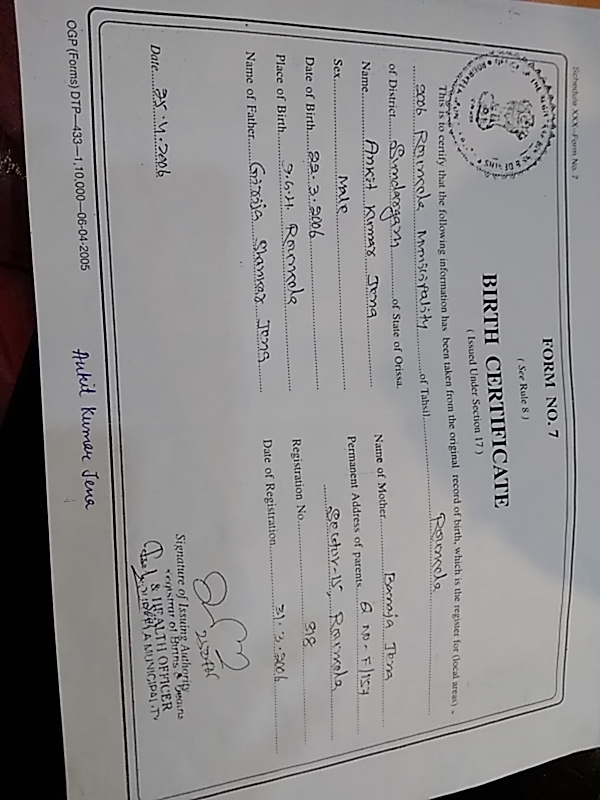 Schedule XXX—Form No. 7
FORM NO. 7
( See Rule 8 )
BIRTH CERTIFICATE
( Issued Under Section 17 )
This is to certify that the following information has been taken from the original record of birth, which is the register for (local areas)
2006 Rourkela Municipality of Tahsil Rourkela
of District Sundargarh of State of Orissa.
Name Ankit Kumar Jena
Sex Male
Date of Birth 22.3.2006
Place of Birth I.G.H. Rourkela
Name of Father Girija Shankar Jena
Name of Mother Banaja Jena
Permanent Address of parents Q No - F/157
Sector-15, Rourkela
Registration No. 918
Date of Registration 31.3.2006
Date 25.4.2006
Signature of Issuing Authority
Registrar of Births & Deaths
& HEALTH OFFICER
MUNICIPALITY
OGP (Forms) DTP—433—1,10,000—06-04-2005
Ankit Kumar Jena